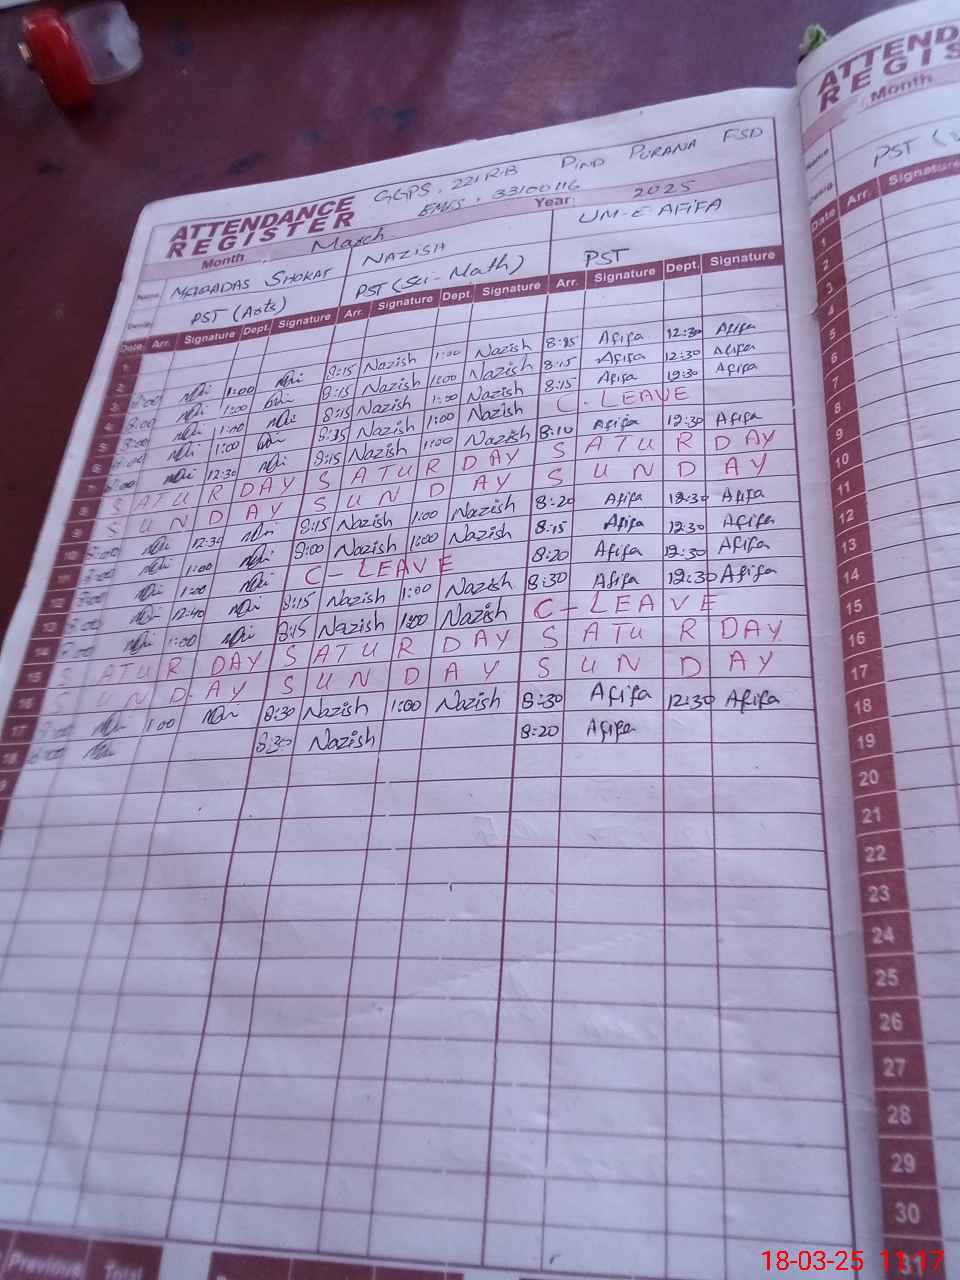 ATTENDANCE REGISTER GGPS, 221 R-B PIND PURANA FSD
EMIS, 33100116
Month March Year: 2025
Name SHOKAT NAZISH UM-E AFIFA
PST (Arts) PST (Sci-Math) PST
Date Arr. Signature Dept. Signature Arr. Signature Dept Signature Arr. Signature Dept. Signature
1
2
3 8:00 1:00 8:15 Nazish 1:00 Nazish Afifa 12:30 Afifa
4 8:00 1:00 8:15 Nazish 1:00 Nazish 8:15 Afifa 12:30 Afifa
5 8:00 1:00 8:15 Nazish 1:00 Nazish 8:15 Afifa 12:30 Afifa
6 1:00 Nazish 1:00 Nazish C-LEAVE
7 12:30 8:15 Nazish 1:00 Nazish 8:10 Afifa 12:30 Afifa
8 SATURDAY SATURDAY SATURDAY
9 SUNDAY SUNDAY SUNDAY
10 8:00 12:30 8:15 Nazish 1:00 Nazish 8:20 Afifa 12:30 Afifa
11 8:00 1:00 8:00 Nazish 1:00 Nazish 8:15 Afifa 12:30 Afifa
12 8:00 1:00 C-LEAVE 8:20 Afifa 12:30 Afifa
13 8:00 12:40 8:15 Nazish 1:00 Nazish 8:30 Afifa 12:30 Afifa
14 8:00 1:00 8:15 Nazish 1:00 Nazish C-LEAVE
15 SATURDAY SATURDAY SATURDAY
16 SUNDAY SUNDAY SUNDAY
17 8:00 1:00 8:30 Nazish 1:00 Nazish 8:30 Afifa 12:30 Afifa
18 8:00 8:30 Nazish 8:20 Afifa
Previous Total
ATTEND
REGIS
Month
Name
PST
Date Arr. Signature
1
2
3
4
5
6
7
8
9
10
11
12
13
14
15
16
17
18
19
20
21
22
23
24
25
26
27
28
29
30
31
18-03-25 11:17